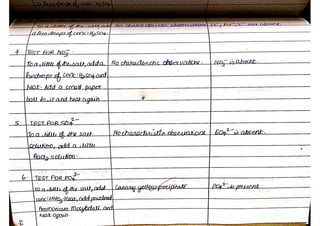 a few drops of conc. H2SO4
To a little of the salt add No characteristic observations Cl-, Br-, I- are absent
a few drops of conc. H2SO4
4. TEST FOR NO3-
To a little of the salt, add a No characteristic observations. NO3- is absent.
few drops of conc. H2SO4 and
heat. Add a small paper
ball to it and heat again
5. TEST FOR SO4 2-
To a little of the salt No characteristic observations SO4 2- is absent.
solution, add a little
BaCl2 solution.
6. TEST FOR PO4 3-
To a little of the salt, add Canary yellow precipitate PO4 3- is present
conc. HNO3, heat, add
Ammonium Molybdate and
heat again